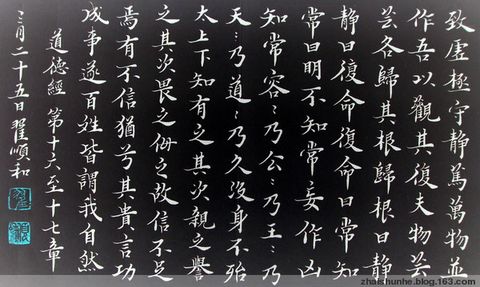 致虛極守靜篤萬物並
作吾以觀其復夫物芸
芸各歸其根歸根曰靜
靜曰復命復命曰常知
常曰明不知常妄作凶
知常容〻乃公〻乃王〻乃
天〻乃道〻乃久沒身不殆
太上下知有之其次親之譽
之其次畏之侮之故信不足
焉有不信猶兮其貴言功
成事遂百姓皆謂我自然
道德經 第十六至十七章
三月二十五日 翟順和
zhaishunhe.blog.163.com